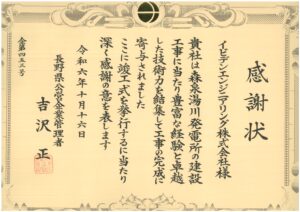 感謝状
イビデンエンジニアリング株式会社様
貴社は森泉湯川発電所の建設
工事に当たり豊富な経験と卓越
した技術力を結集して工事の完成に
寄与されました
ここに竣工式を挙行するに当たり
深く感謝の意を表します
令和六年十月十六日
長野県公営企業管理者
吉沢正
企第四五三号